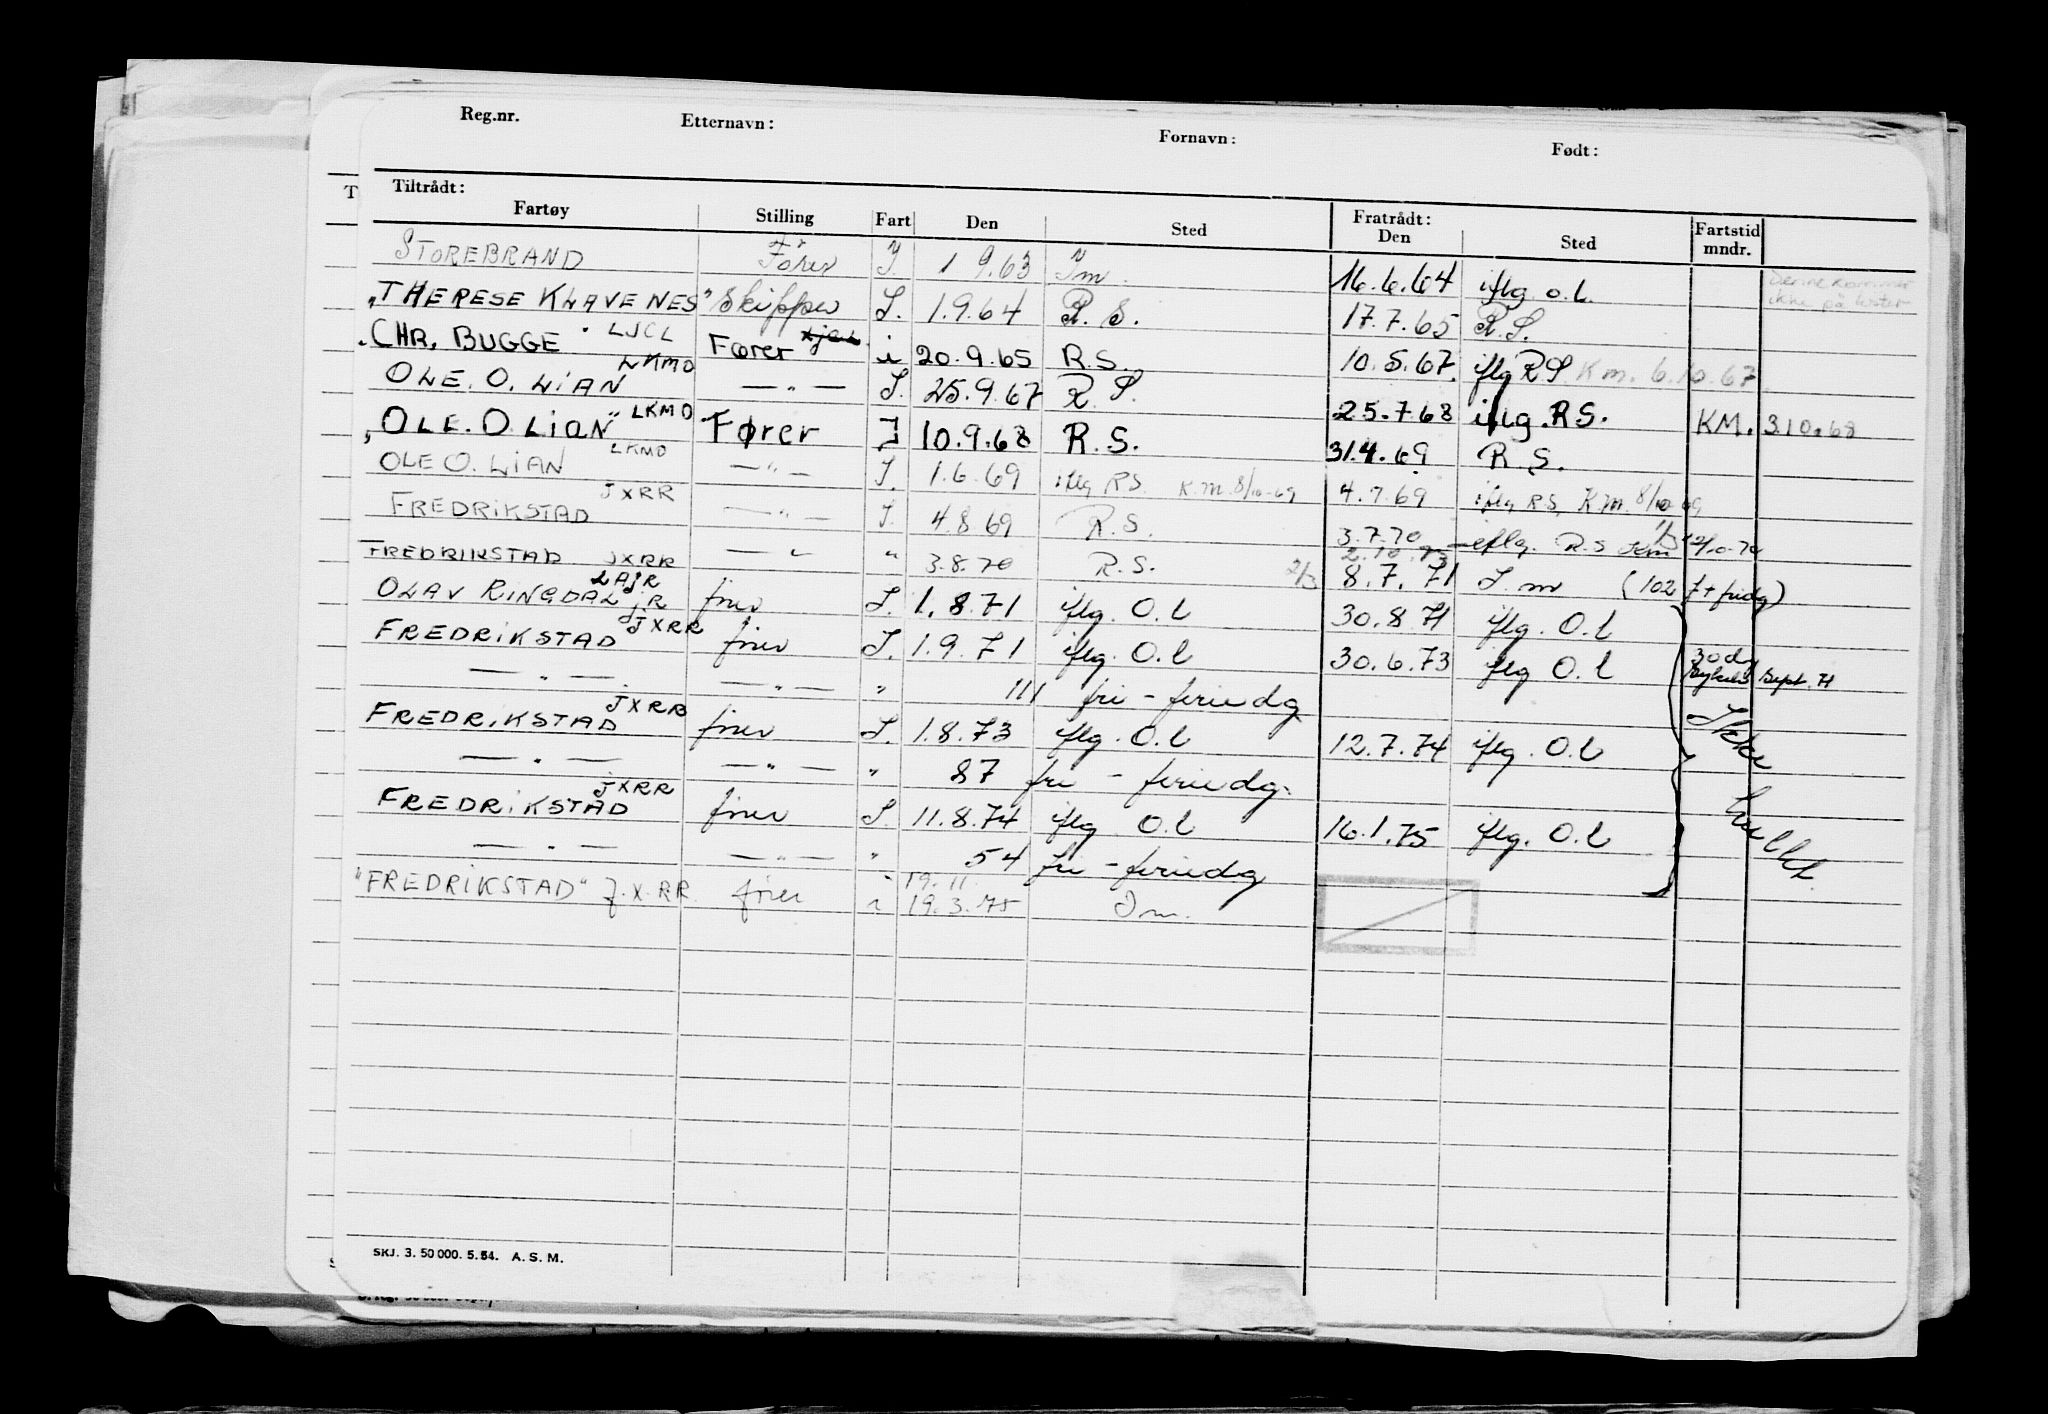 Reg.nr. Etternavn: Fornavn: Født:
Tiltrådt: Fratrådt:
Fartøy Stilling Fart Den Sted Den Sted Fartstid mndr.
STOREBRAND Fører I. 1 9.63 Im. 16.6.64 iflg. o.l. Denne kommer ikke på lister
"THERESE KLAVENES" Skipper I. 1.9.64 R.S. 17.7.65 R.S.
"CHR. BUGGE" LJCL Fører i 20.9.65 R.S. 10.5.67 iflg R S Km. 6.10.67.
OLE. O. LIAN LKMO — " — I. 25.9.67 R.S. 25.7.68 iflg. R.S. KM. 3.10.68
"OLE. O. LIAN" LKMO Fører I 10.9.68 R.S. 31.4.69 R.S.
OLE O. LIAN LKMO — " — I. 1.6.69 iflg R.S. K.m. 8/10-69 4.7.69 iflg R.S. K.m. 8/10 69
FREDRIKSTAD JXRR — " — I. 4.8 69 R.S. 3.7.70 iflg. R.S Km 12/10-70
FREDRIKSTAD JXRR — " — " 3.8.70 R.S. 2/3 2.10.73 8.7.71 I.m (102 f + fridg)
OLAV RINGDAL jR LAJR fører I. 1.8.71 iflg. O.l 30.8 71 iflg. O.l
FREDRIKSTAD JXRR fører I. 1.9.71 iflg. O.l 30.6.73 iflg O.l 30 dg Sept. 71
— " — — " — " 111 fri - feriedg
FREDRIKSTAD JXRR fører I. 1.8.73 iflg. O.l 12.7.74 iflg. O.l Ikke
— " — — " — " 87 fri - feriedg.
FREDRIKSTAD JXRR fører I. 11.8.74 iflg O.l 16.1.75 iflg. O.l
— " — — " — " 54 fri - feriedg
"FREDRIKSTAD" J.X.RR fører i 19.11. 19.3.75 Im.
SKJ. 3. 50 000. 5. 64. A. S. M.